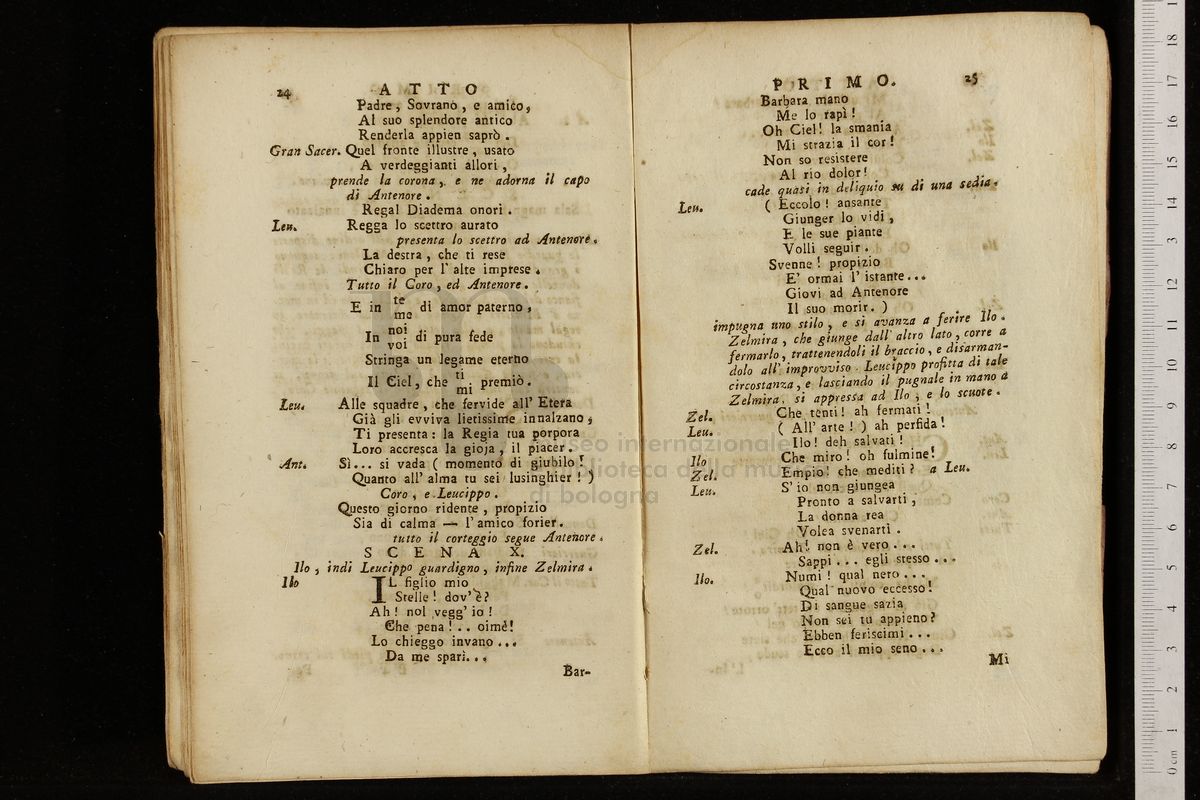 24 A T T O
Padre, Sovrano, e amico,
Al suo splendore antico
Renderla appien saprò.
Gran Sacer. Quel fronte illustre, usato
A verdeggianti allori,
prende la corona, e ne adorna il capo
di Antenore.
Regal Diadema onori.
Leu. Regga lo scettro aurato
presenta lo scettro ad Antenore.
La destra, che ti rese
Chiaro per l' alte imprese.
Tutto il Coro, ed Antenore.
E in te di amor paterno,
me
In noi di pura fede
voi
Stringa un legame eterno
Il Ciel, che ti premiò.
mi
Leu. Alle squadre, che fervide all' Etera
Già gli evviva lietissime innalzano,
Ti presenta: la Regia tua porpora
Loro accresca la gioja, il piacer.
Ant. Sì... si vada ( momento di giubilo!
Quanto all' alma tu sei lusinghier! )
Coro, e Leucippo.
Questo giorno ridente, propizio
Sia di calma — l' amico forier.
tutto il corteggio segue Antenore.
S C E N A X.
Ilo, indi Leucippo guardigno, infine Zelmira.
Ilo IL figlio mio
Stelle! dov' è?
Ah! nol vegg' io!
Che pena!.. oimè!
Lo chieggo invano...
Da me sparì...
Bar-
P R I M O. 25
Barbara mano
Me lo rapì!
Oh Ciel! la smania
Mi strazia il cor!
Non so resistere
Al rio dolor!
cade quasi in deliquio su di una sedia.
Leu. ( Eccolo! ansante
Giunger lo vidi,
E le sue piante
Volli seguir.
Svenne! propizio
E' ormai l' istante...
Giovi ad Antenore
Il suo morir. )
impugna uno stilo, e si avanza a ferire Ilo.
Zelmira, che giunge dall' altro lato, corre a
fermarlo, trattenendoli il braccio, e disarman-
dolo all' improvviso. Leucippo profitta di tale
circostanza, e lasciando il pugnale in mano a
Zelmira, si appressa ad Ilo, e lo scuote.
Zel. Che tenti! ah fermati!
Leu. ( All' arte! ) ah perfida!
Ilo! deh salvati!
Ilo Che miro! oh fulmine!
Zel. Empio! che mediti? a Leu.
Leu. S' io non giungea
Pronto a salvarti,
La donna rea
Volea svenarti.
Zel. Ah! non è vero...
Sappi... egli stesso...
Ilo. Numi! qual nero...
Qual nuovo eccesso!
Di sangue sazia
Non sei tu appieno?
Ebben feriscimi...
Ecco il mio seno...
Mi
museo internazionale
e biblioteca della musica
di bologna
0 cm 1 2 3 4 5 6 7 8 9 10 11 12 13 14 15 16 17 18